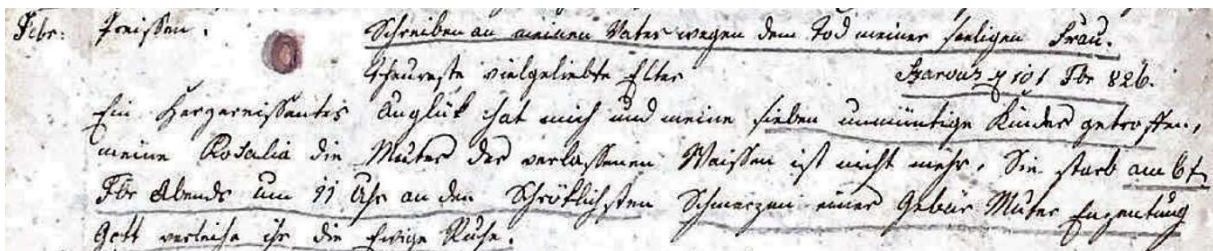 Febr: Schreiben an meinen Vater wegen dem Tod meiner seeligen Frau.
Theureste vielgeliebte Elter 10t Fbr 826.
Ein Herzereissentes Unglük hat mich und meine sieben unmüntige Kinder getroffen,
meine Rosalia die Muter der verlassenen Waissen ist nicht mehr, Sie starb am 6t
Fbr Abends um 11 Uhr an den Schröklichsten Schmerzen einer Gebär Muter Enzentung
Gott verleihe ihr die Ewige Ruhe.